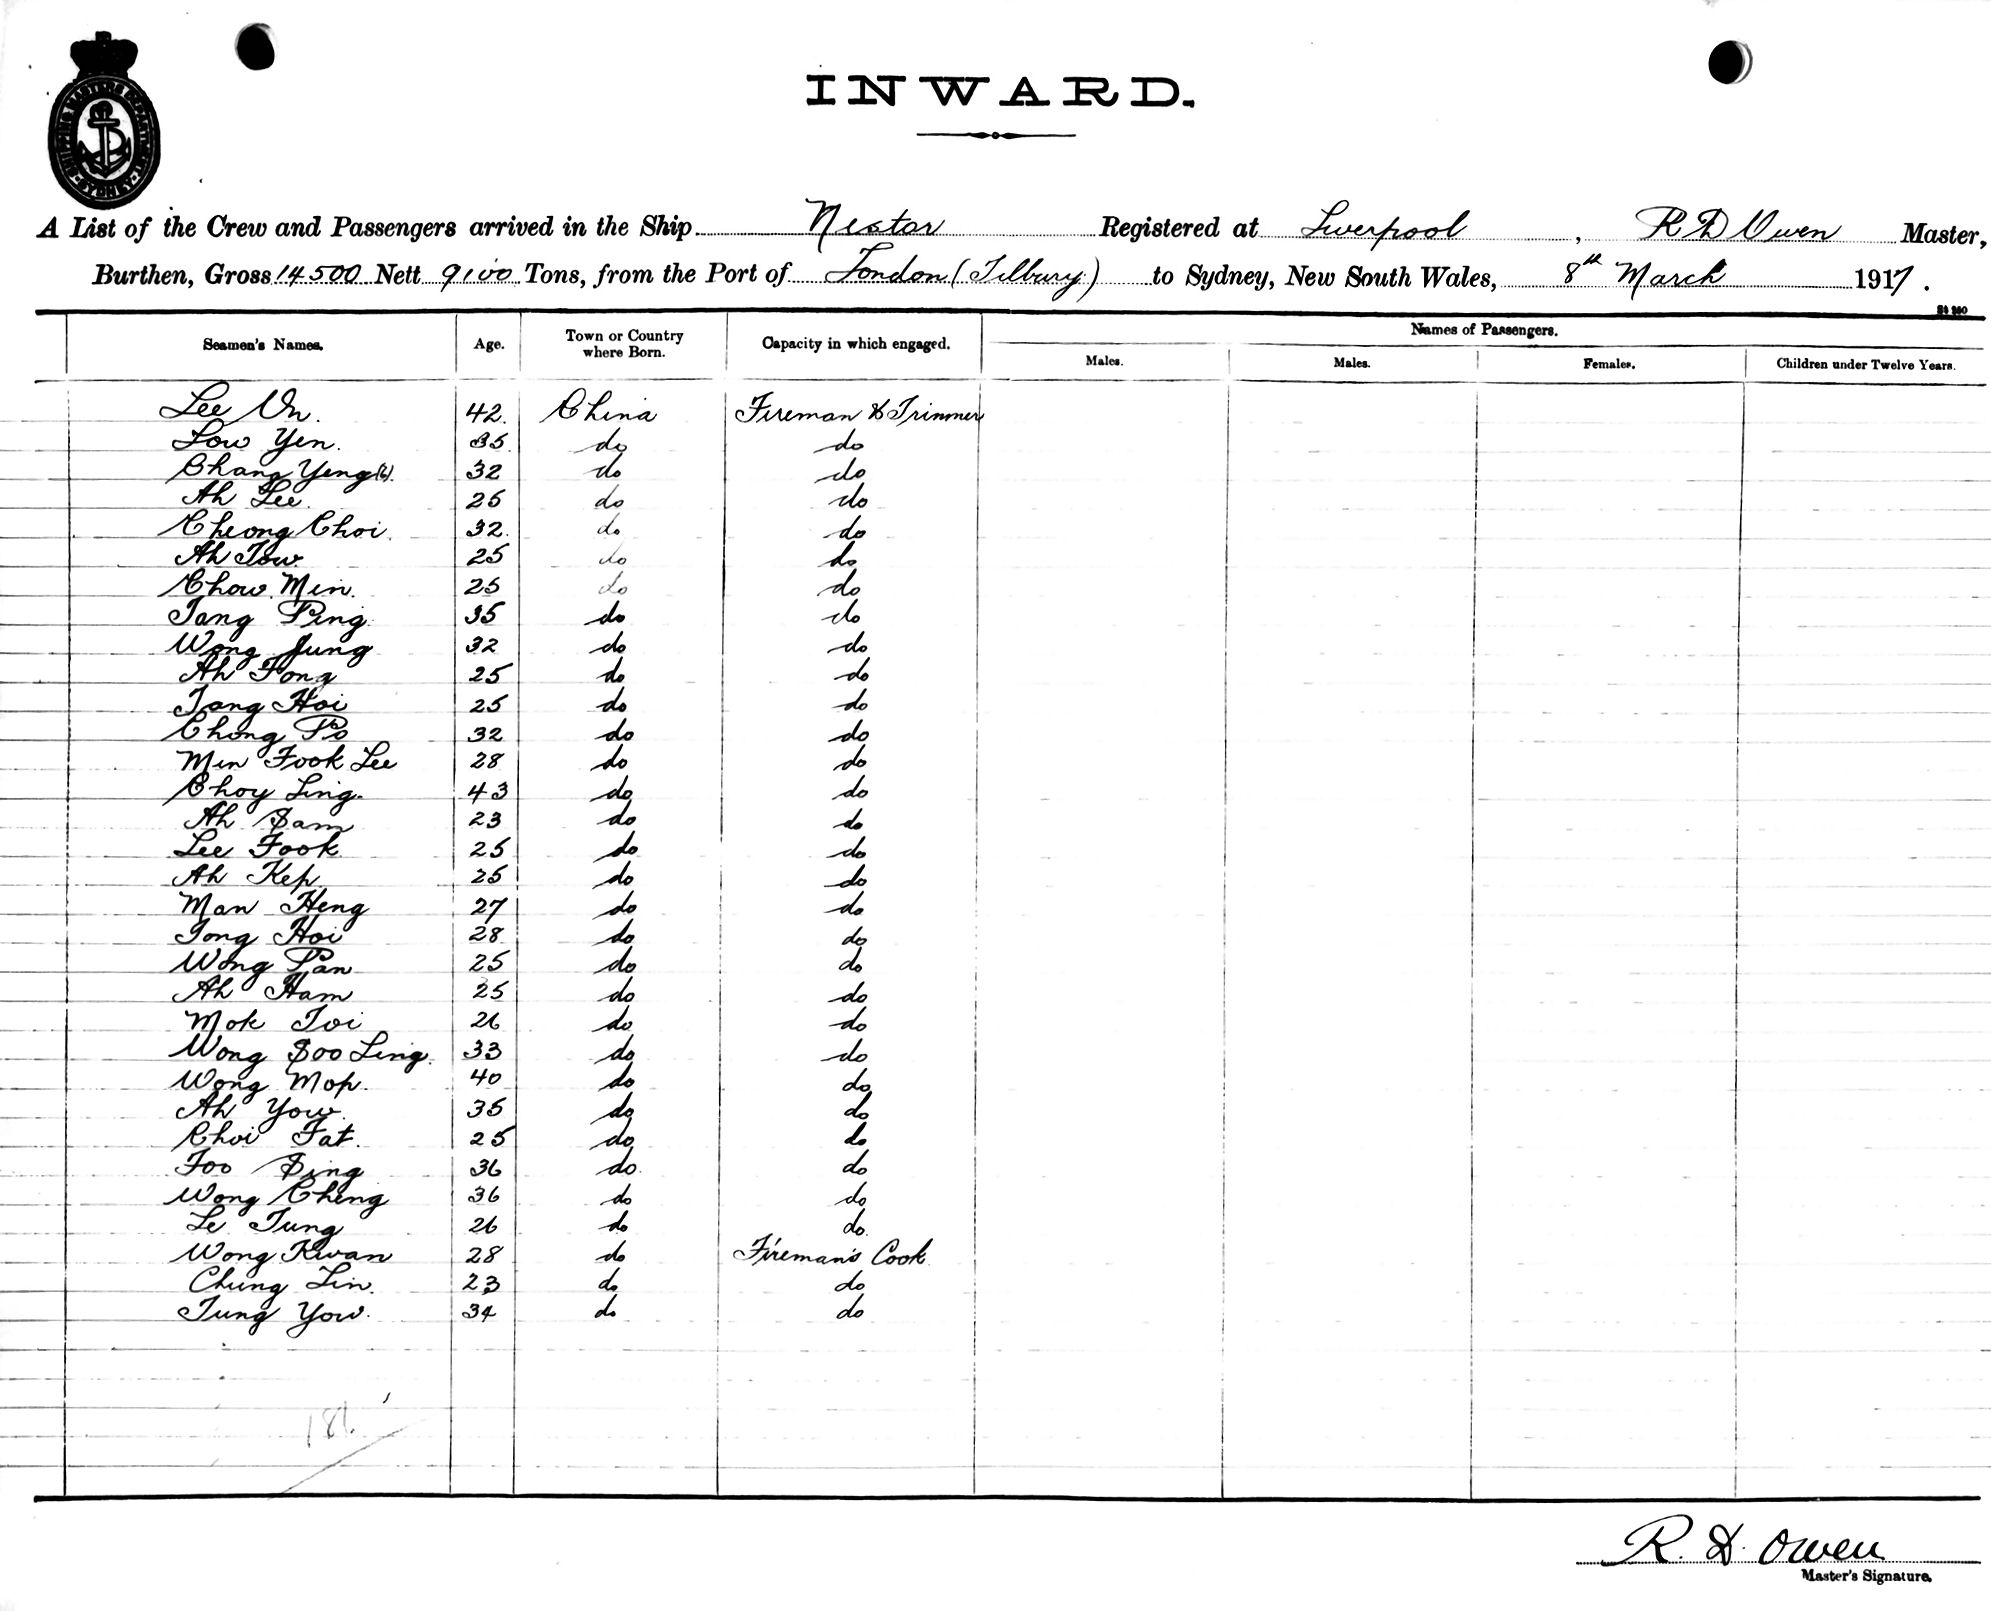 SHIPPING MASTERS DEPARTMENT
SYDNEY
INWARD.
A List of the Crew and Passengers arrived in the Ship Nestor Registered at Liverpool, R D Owen Master,
Burthen, Gross 14500 Nett 9100 Tons, from the Port of London (Tilbury) to Sydney, New South Wales, 8th March 1917.
Names of Passengers.
Seamen's Names. Age. Town or Country where Born. Capacity in which engaged. Males. Males. Females. Children under Twelve Years.
Lee Un. 42. China Fireman & Trimmer
Low Yen. 35 do do
Chang Yeng (6). 32 do do
Ah Lee. 25 do do
Cheong Choi. 32. do do
Ah Tow. 25 do do
Chow Min. 25 do do
Tang Ping. 35 do do
Wong Jung 32 do do
Ah Fong 25 do do
Tang Hoi 25 do do
Chong Po 32 do do
Min Fook Lee 28 do do
Choy Ling. 43 do do
Ah Sam 23 do do
Lee Fook 25 do do
Ah Kep 25 do do
Man Heng 27 do do
Tong Hoi 28 do do
Wong Pan 25 do do
Ah Ham 25 do do
Mok Toi 26 do do
Wong Soo Ling. 33 do do
Wong Mop. 40 do do
Ah Yow. 35 do do
Choi Fat. 25 do do
Foo Sing 36 do. do
Wong Cheng 36 do do
Le Tung 26 do do.
Wong Kwan 28 do Fireman's Cook
Chung Lin. 23 do do
Tung Yow. 34 do do
R. D. Owen
Master's Signature.